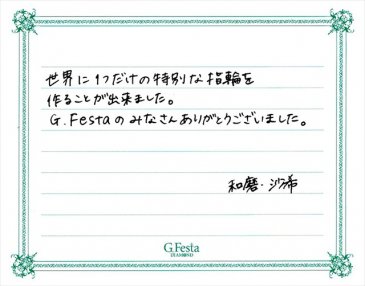 世界に1つだけの特別な指輪を
作ることが出来ました。
G.Festaのみなさんありがとうございました。
和磨・沙希
G.Festa
DIAMOND